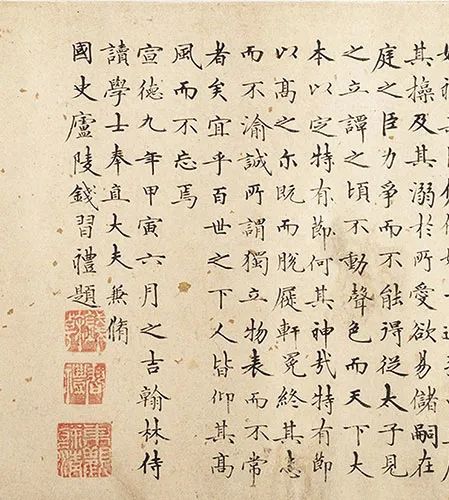 其操及其溺於所愛欲易儲嗣在
庭之臣力爭而不能得從太子見
之立譚之頃不動聲色而天下大
本以定特有節何其神哉特有節
以高之尓既而脫屣軒冕終其志
而不渝誠所謂獨立物表而不常
者矣宜乎百世之下人皆仰其高
風而不忘焉
宣德九年甲寅六月之吉翰林侍
讀學士奉直大夫兼脩
國史廬陵錢習禮題